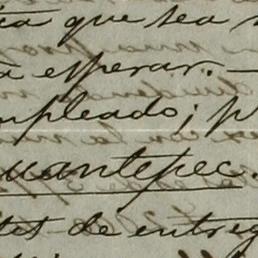 que sea
esperar.—
mpleado; p
uantepec.
de entreg